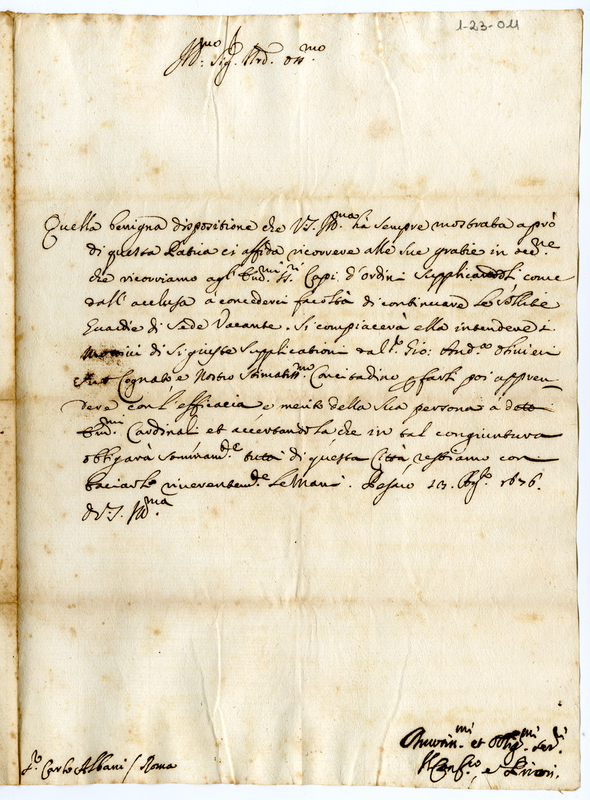 1-23-011
Ill:mo Sig.r Prd. Oss.mo
Quella benigna dispositione che V.S. Ill.ma hà sempre mostrata a prò
di questa Patria ci affida ricorrere alle sue gratie in occ.ne
che ricorriamo agl' Em.mi SS.ri Capi d'ordini supplicandoli come
dall' acclusa a concederci facoltà di continuare le solite
Guardie di Sede Vacante. Si compiacerà ella intendere i
motivi di si giuste supplicationi dal S.r Gio: And.a Olivieri
suo Cognato e Nostro stimatiss.mo Concitadino p farli poi appren-
dere con l'efficacia e merito della sua persona a detti
Em.mi Cardinali et accertandola, che in tal congiuntura
obligarà sommam.te tutta di questa Città, restiamo con
baciarle riverentem.te le Mani. Pesaro 23. Ag.to 1676.
di V.S. Ill.ma
S.r Carlo Albani / Roma
et Oblig.mi Ser.ri
Il Conf.ro e Priori.